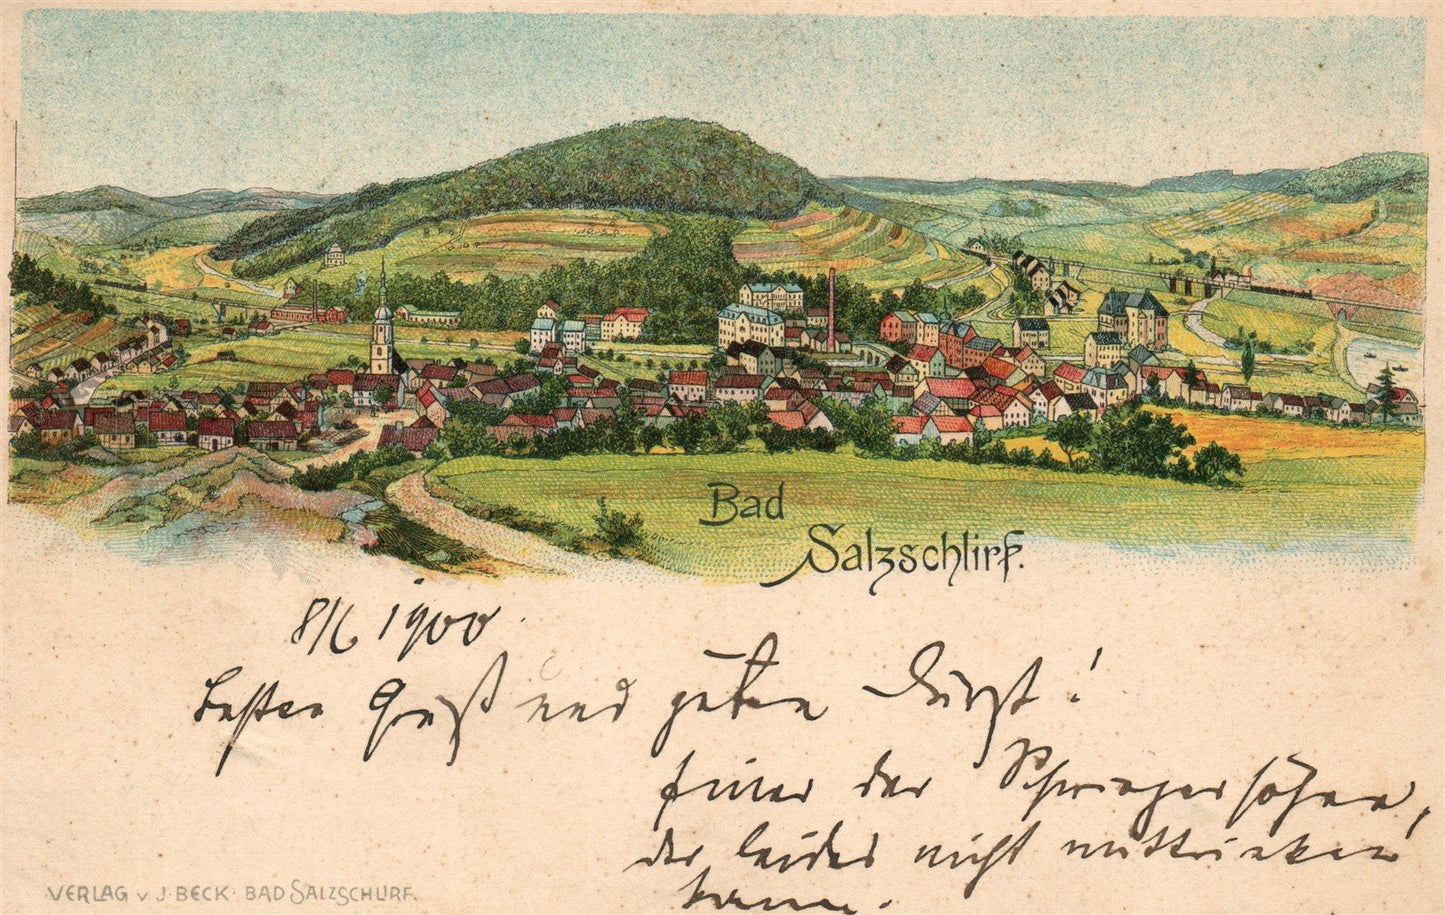 Bad
Salzschlirf.
8/6 1900.
besten Gruß und guten Durst!
Einer der Schwiegersöhne,
der leider nicht mittrinken
kann.
VERLAG v J. BECK · BAD SALZSCHLIRF.